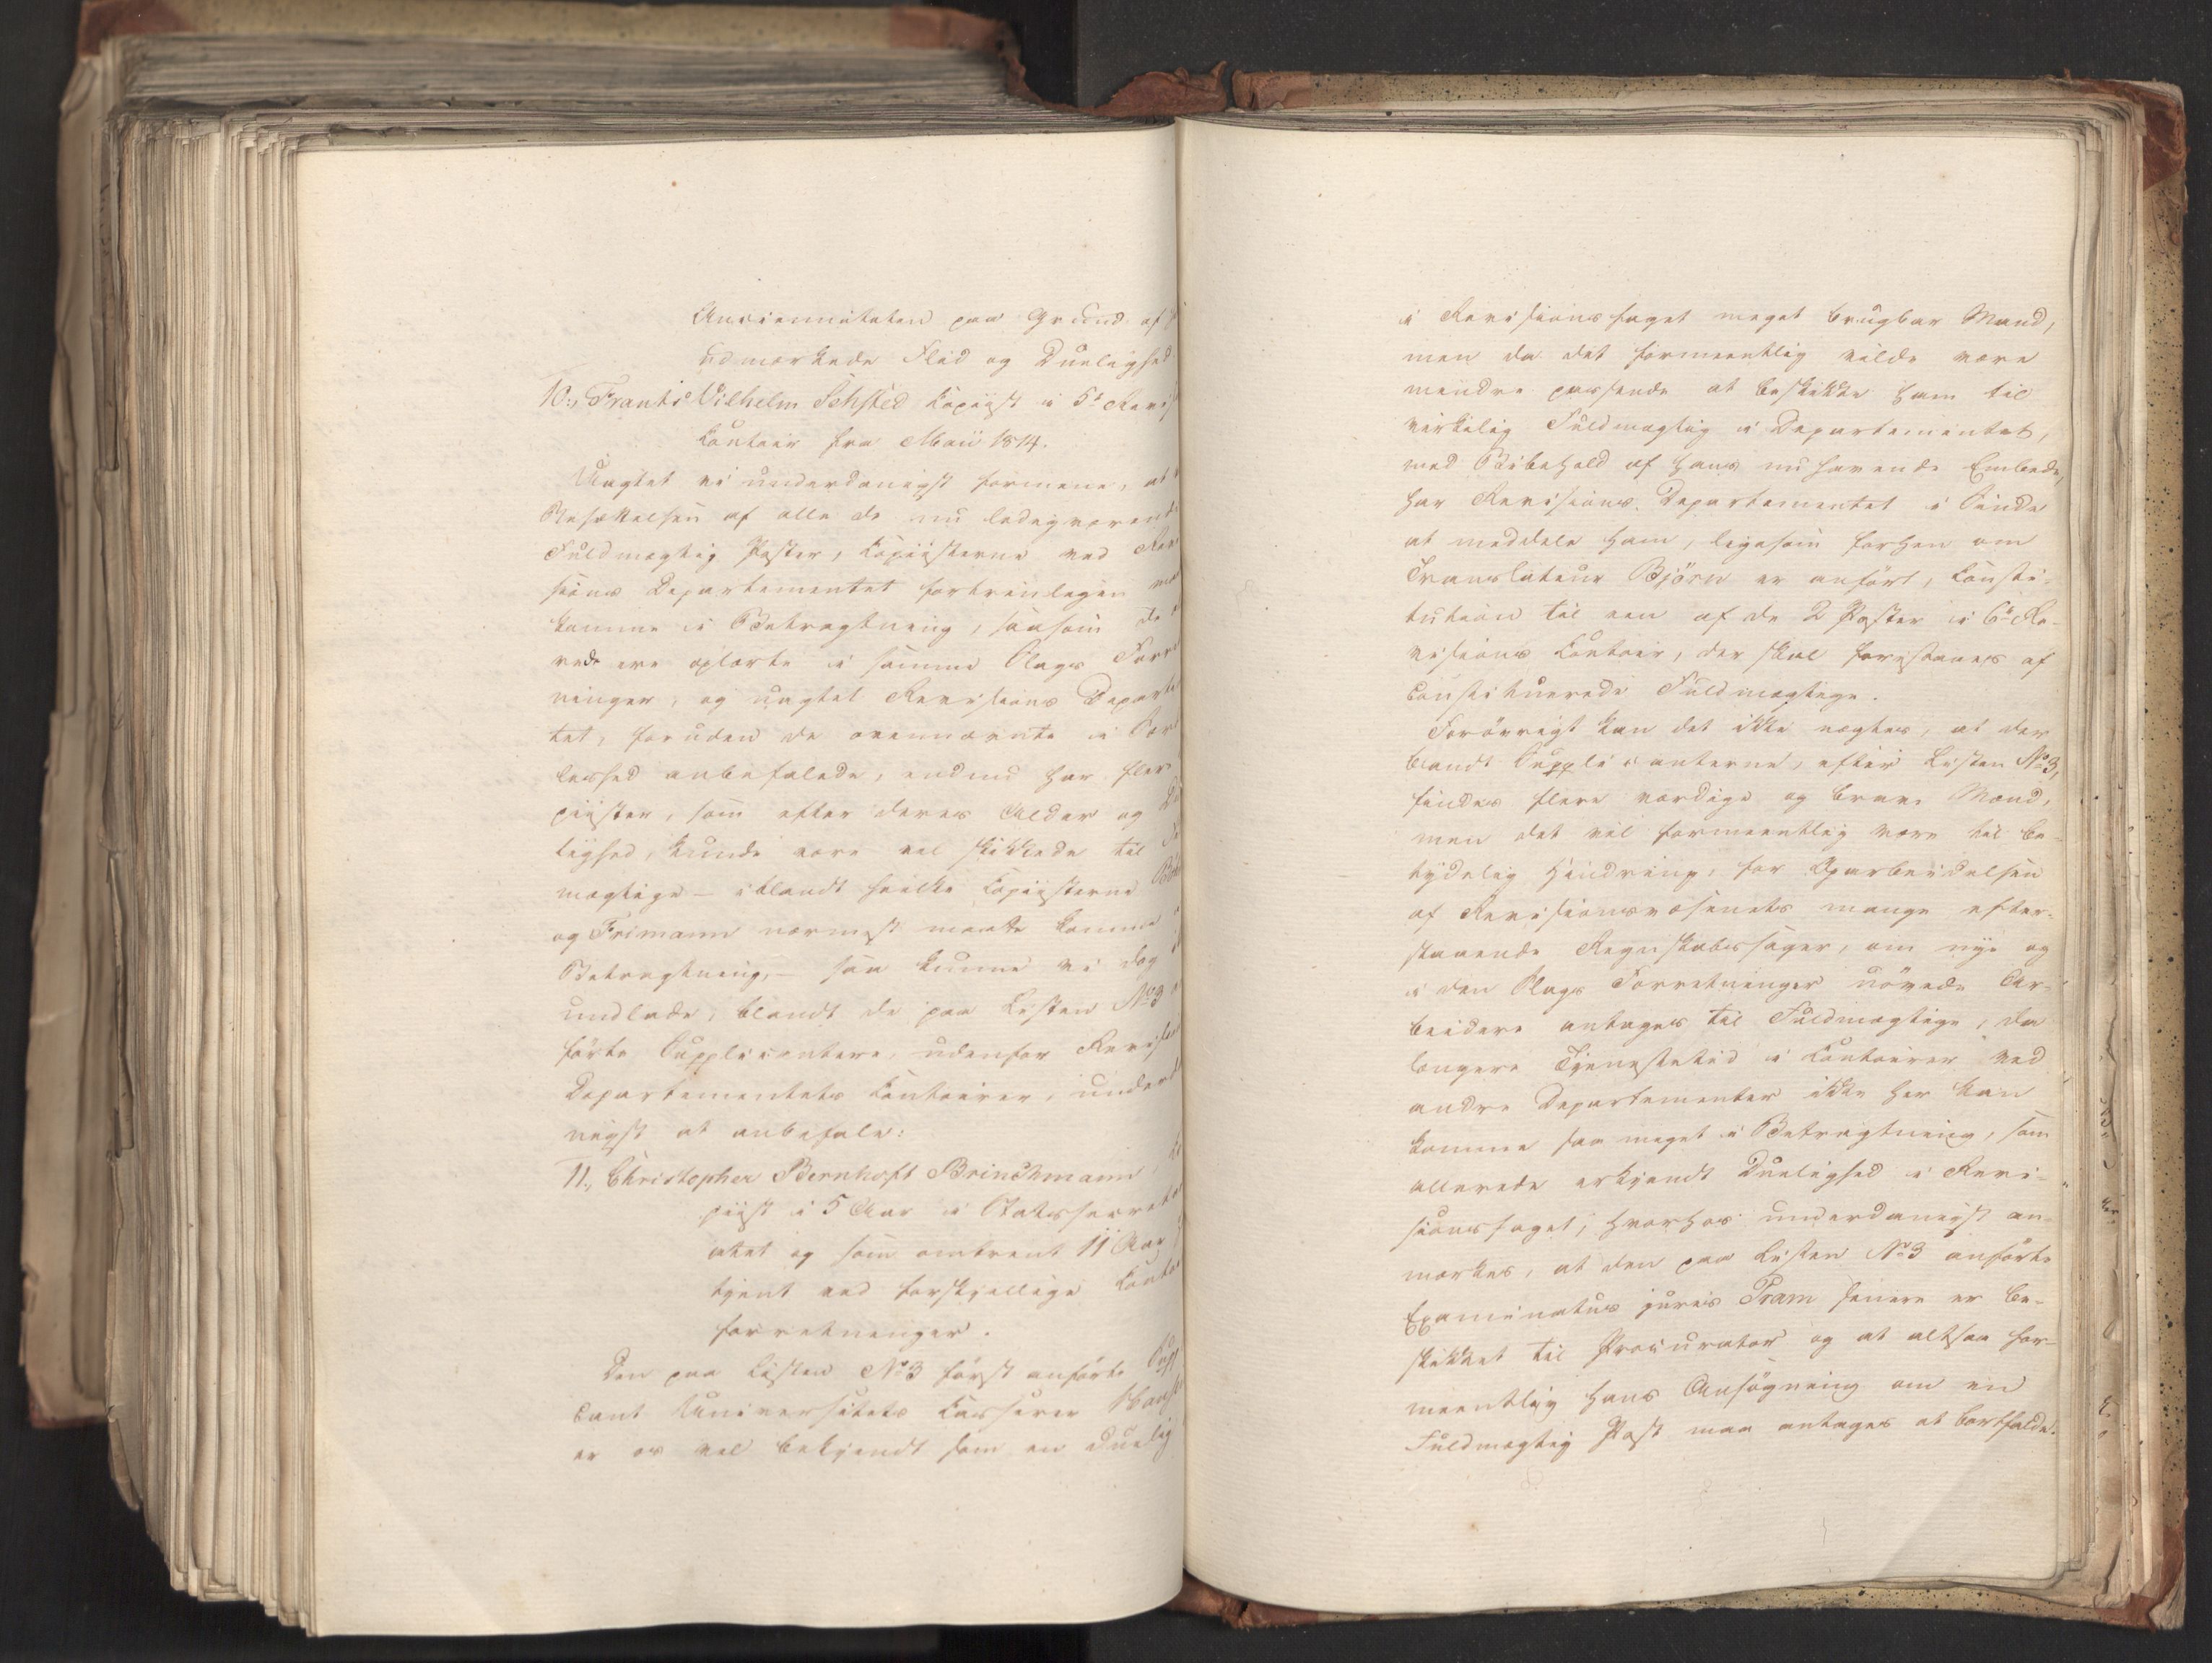 Ancienniteten paa Grund af
udmærkede Flid og Duelighed
10., Frants Vilhelm Sehsted Kopiist i 5te Revis
Contoir fra Maii 1814.
Uagtet vi underdanigst formene, at
Besættelsen af alle de nu ledigværende
Fuldmægtig Poster, Kopiisterne ved Revi
sions Departementet fortrinligen maa
komme i Betragtning, saasom de
vede ere oplærte i samme Slags Forret
ninger, og uagtet Revisions Departe
tet, foruden de ovennævnte i Sær
leshed anbefalede, endnu har flere
piister, som efter deres Alder og Du
lighed, kunde være vel skikkede til
mægtige – iblandt hvilke Kopiisterne
og Frimann nærmest maatte komme i
Betragtning, – saa kunne vi dog
undlade, blandt de paa Listen No 3
førte Supplicantere, udenfor Revis
Departementets Contoirer, underda
nigst at anbefale:
11., Christopher Bernhoft Brinchmann,
piist i 5 Aar i Statssecret
atet og som omtrent 11 Aar
tjent ved forskjellige Conto
forretninger.
Den paa Listen No 3 først anførte Suppl
cant Universitets Casserer
er os vel bekjendt som en duelig
i Revisionsfaget meget brugbar Mand,
men da det formeentlig vilde være
mindre passende at beskikke ham til
virkelig Fuldmægtig i Departementet,
med Bibehold af hans nuhavende Embede,
har Revisions Departementet i Sinde
at meddele ham, ligesom forhen om
Translateur Bjørn er anført, Consti-
tution til een af de 2 Poster i 6te Re-
visions Contoir, der skal forestaaes af
constituerede Fuldmægtige.
Forøvrigt kan det ikke nægtes, at der
blandt Supplicanterne, efter Listen No 3,
findes flere værdige og brave Mænd,
men det vil formeentlig være til be-
tydelig Hindring, for Oparbeidelsen
af Revisionsvæsenets mange efter-
staaende Regnskabssager, om nye og
i den Slags Forretninger uøvede Ar-
beidere antages til Fuldmægtige, da
længere Tjenestetid i Contoirer ved
andre Departementer ikke her kan
komme saa meget i Betragtning, som
allerede erkjendt Duelighed i Revi-
sionsfaget; hvorhos underdanigst an-
mærkes, at den paa Listen No 3 anførte
Examinatus juris Tram senere er be-
skikket til Procurator og at altsaa for-
meentlig hans Ansøgning om en
Fuldmægtig Post maa antages at bortfalde.